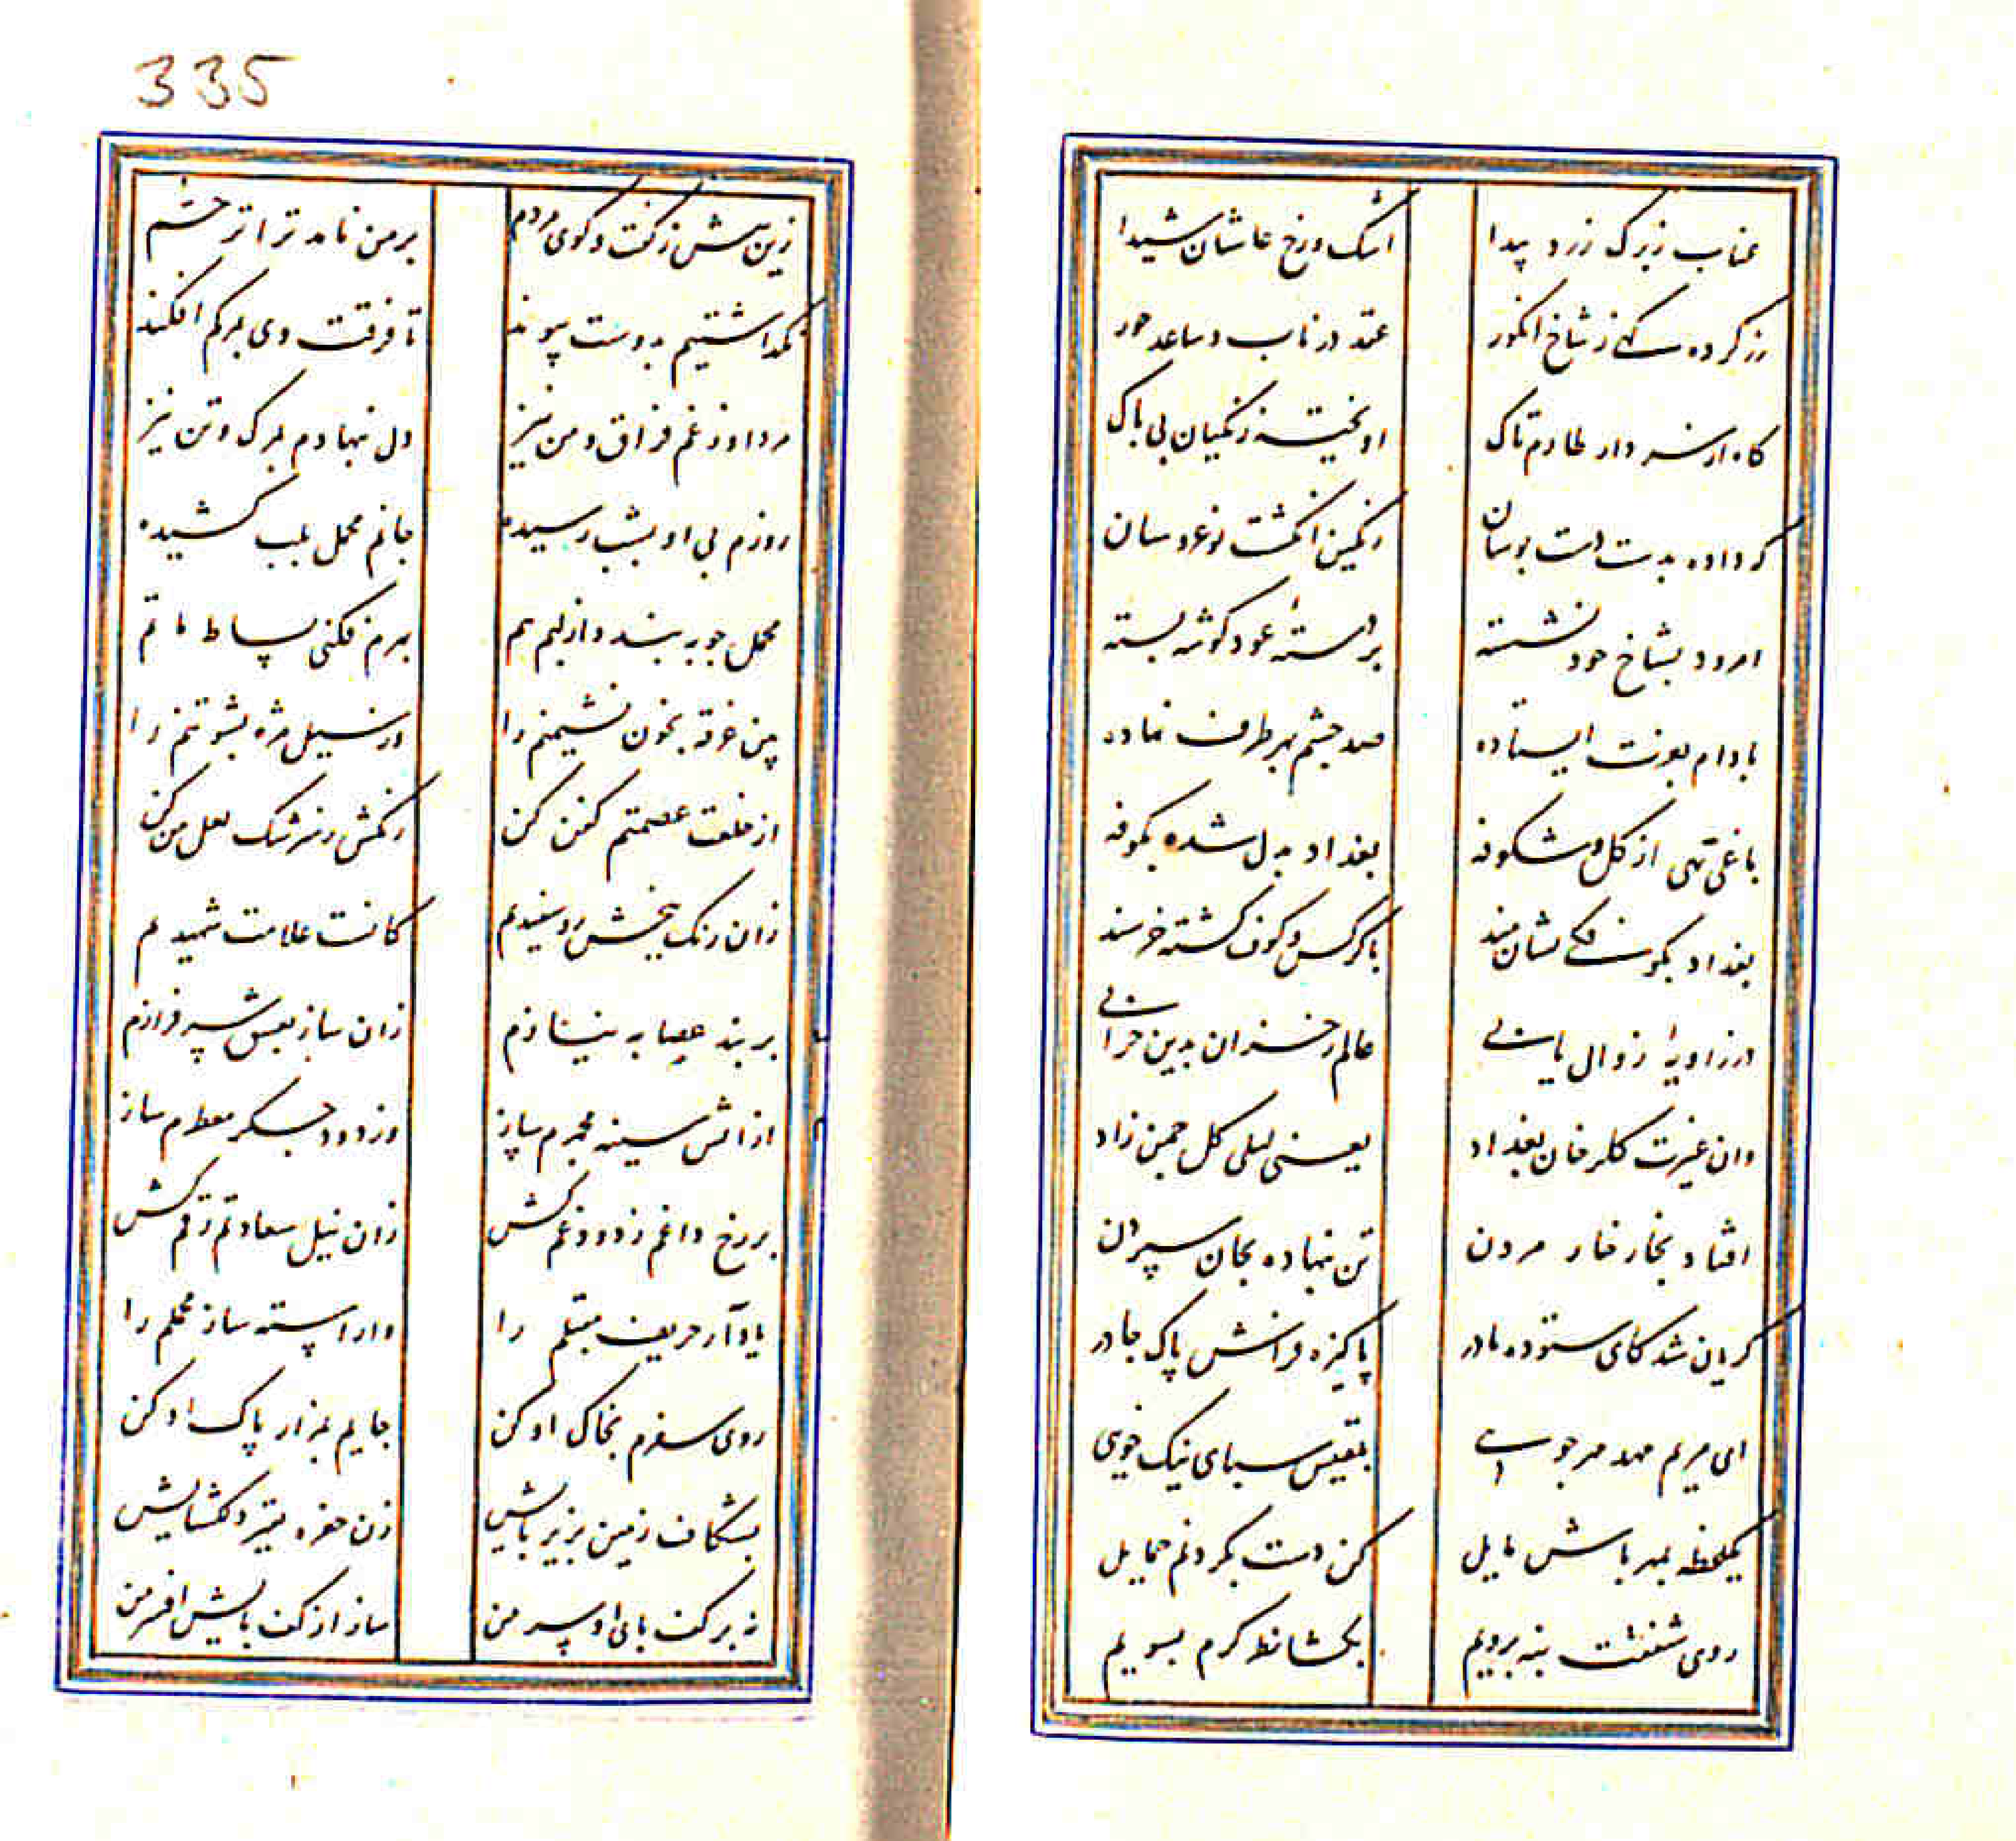 عناب ز برک زرد پیدا
اشک و رخ عاشقان شیدا
رز کرده کهی ز شاخ انکور
عقد در ناب و ساعد حور
کاه از سر دار طارم تاک
اویخته زنکیان بی باک
کر داده بدست دست بوسان
رنکین انکشت نوعروسان
امرود بشاخ خود نشسته
بر دسته عود کوشه بسته
بادام بعونت ایستاده
صد چشم بهر طرف نهاده
باغی تهی از کل و شکوفه
بغداد بدل شده بکوفه
بغداد بکوفه
با کرکس و کوف کشته خرسند
در زاویه زوال یابی
عالم ز خزان بدین خرابی
وان غیرت کلرخان بغداد
یعنی لیلی کل چمن زاد
افتاد بخار خار مردن
تن نهاده بجان سپردن
کریان شد کای ستوده مادر
پاکیزه فراش پاک چادر
ای مریم مهد مهرجویی
بلقیس سبای نیک خویی
یکلحظه بمهر باش مایل
کن دست بکردنم حمایل
روی شفقت بنه برویم
بکشا نظر کرم بسویم
335
زین پیش ز کفت و کوی مردم
بر من نامد ترا ترحم
نکذاشتیم بدوست پیوند
تا فرقت وی بمرکم افکند
مرد او ز غم فراق و من نیز
دل نهادم بمرک و تن نیز
روزم بی او بشب رسیده
جانم محمل بلب کشیده
محمل چو به بندد از لبم هم
بهرم فکنی بساط ماتم
بین غرقه بخون نشیمنم را
در سیل مژه بشو تنم را
از خلعت عصمتم کفن کن
رنکش ز سرشک لعل من کن
زان رنک ببخش رو سفیدیم
کانست علامت شهیدیم
بر بند عصابه نیازم
زان ساز بعیش سرفرازم
از اتش سینه مجمرم ساز
وز دود جکر معطرم ساز
بر رخ داغم ز دود غم کش
زان نیل سعادتم رقم کش
یاد آر حریف مقبلم را
واراسته ساز محملم را
روی سفرم بخاک او کن
جایم بمزار پاک او کن
بشکاف زمین بزیر پایش
زن حفره بقبر دلکشایش
نه بر کف پای او سر من
ساز از کف پایش افسر من